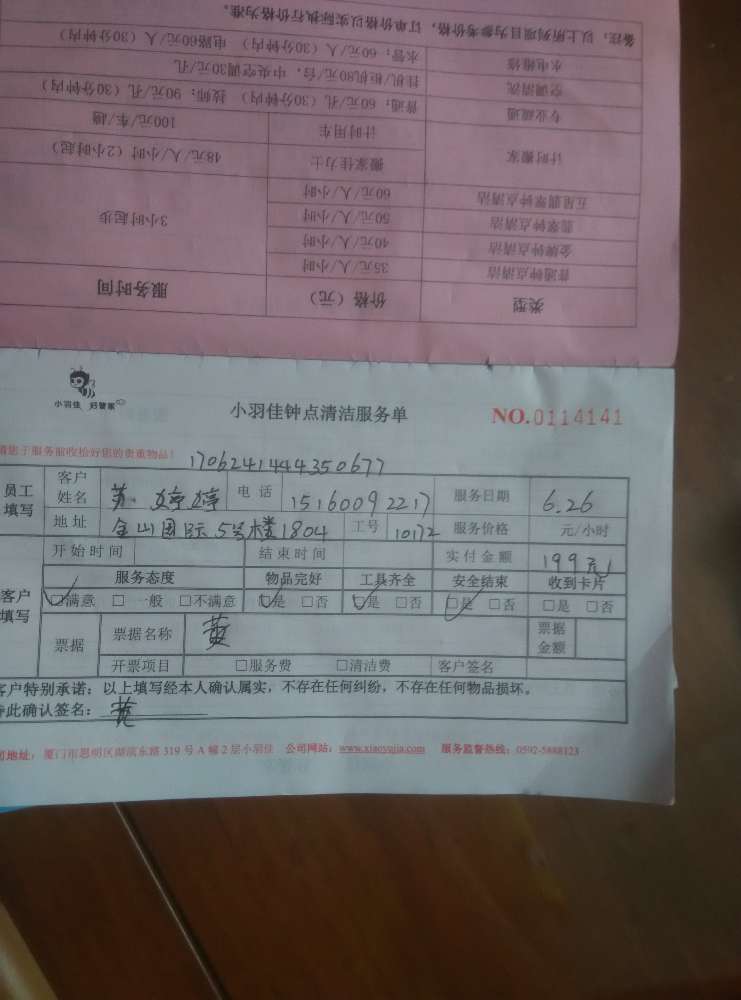 类型 价格（元） 服务时间
普通钟点清洁 35元/人/小时
金牌钟点清洁 40元/人/小时
翡翠钟点清洁 50元/人/小时 3小时起步
五星翡翠钟点清洁 60元/人/小时
计时搬家 搬家佳力士 48元/人/小时（2小时起）
计时用车 100元/车/趟
专业疏通 普通：60元/孔（30分钟内） 技师：90元/孔（30分钟内）
空调清洗 挂机/柜机80元/台，中央空调30元/孔
水电维修 水管：60元/人（30分钟内） 电路60元/人（30分钟内）
备注：以上所列项目为参考价格，订单价格以实际执行价格为准。
小羽佳 好管家
小羽佳钟点清洁服务单 NO.0114141
请您于服务前收捡好您的贵重物品！
1706241444350677
员工填写 客户姓名 苏婷婷 电话 15160092217 服务日期 6.26
地址 金山国际5号楼1804 工号 10172 服务价格 元/小时
开始时间 结束时间 实付金额 199元
客户填写 服务态度 物品完好 工具齐全 安全结束 收到卡片
□满意 □一般 □不满意 □是 □否 □是 □否 □是 □否 □是 □否
票据 票据名称 黄 票据金额
开票项目 □服务费 □清洁费 客户签名
客户特别承诺：以上填写经本人确认属实，不存在任何纠纷，不存在任何物品损坏。
此确认签名：黄
地址：厦门市思明区湖滨东路319号A幢2层小羽佳 公司网站：www.xiaoyujia.com 服务监督热线：0592-5888123